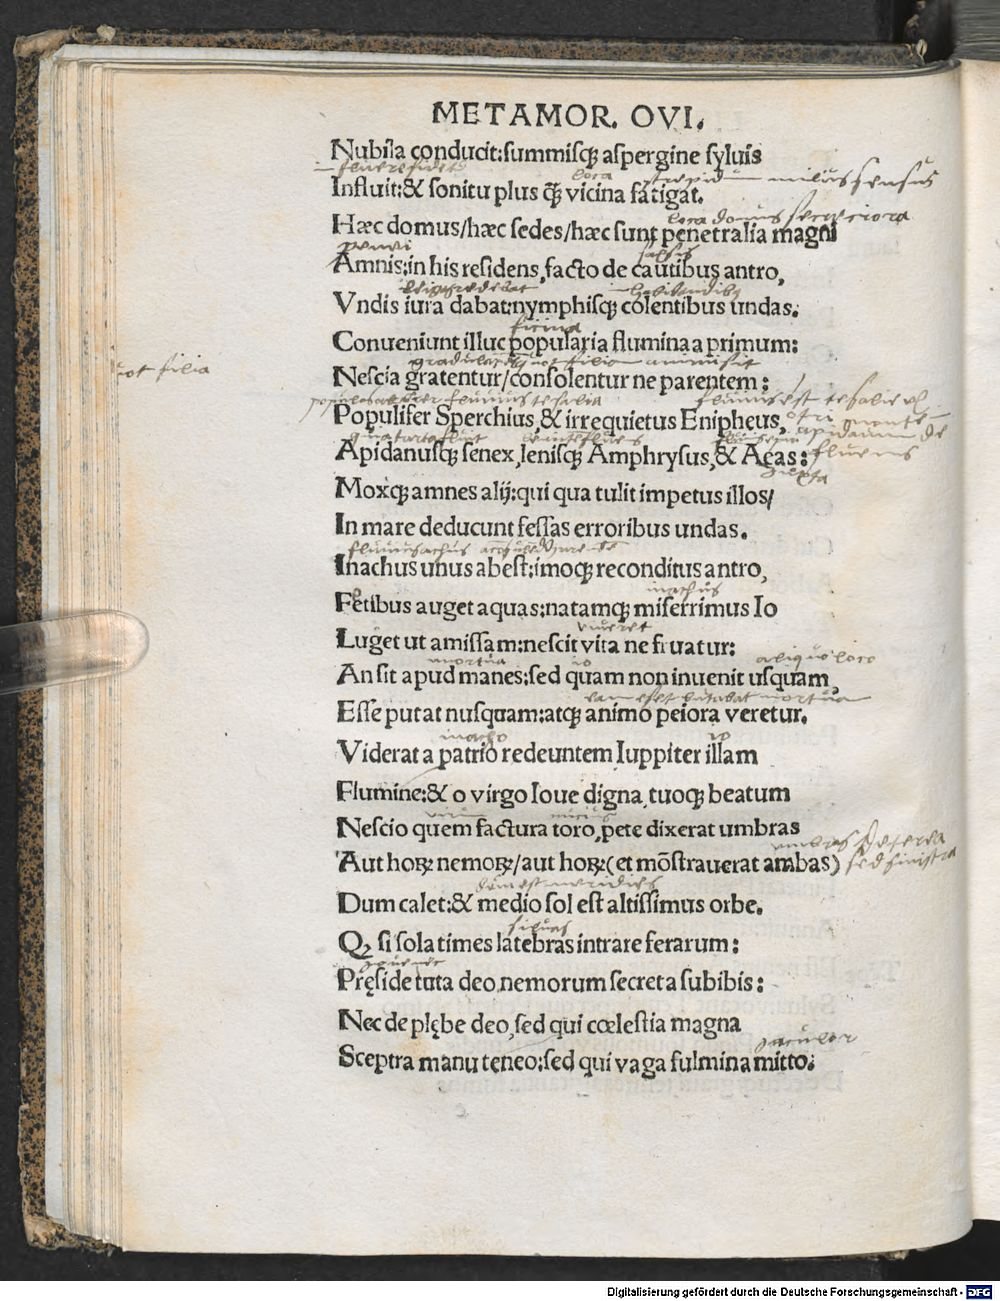 METAMOR. OVI.
Nubila conducit:summisqꝫ aspergine syluis
Influit:& sonitu plus q̃ꝫ vicina fatigat.
loca
sensus
Hæc domus/hæc sedes/hæc sunt penetralia magni
loca domus secreciora
Amnis:in his residens,facto de cautibus antro,
saxis
Vndis iura dabat:nymphisqꝫ colentibus undas.
Conueniunt illuc popularia flumina a primum:
Nescia gratentur/consolentur ne parentem:
filia
Populifer Sperchius,& irrequietus Enipheus,
Apidanusqꝫ senex,lenisqꝫ Amphrysus,& Aeas:
fluuius
Moxqꝫ amnes alij:qui qua tulit impetus illos/
In mare deducunt fessas erroribus undas.
Inachus unus abest:imoqꝫ reconditus antro,
Fletibus auget aquas:natamqꝫ miserrimus Io
inachus
Luget ut amissam:nescit vita ne fruatur:
viueret
An sit apud manes:sed quam non inuenit usquam,
mortua
io
aliquo loco
Esse putat nusquam:atqꝫ animo peiora veretur.
mortua
Viderat a patrio redeuntem Iuppiter illam
inacho
io
Flumine:& o virgo Ioue digna,tuoqꝫ beatum
Nescio quem factura toro,pete dixerat umbras
Aut horꝝ nemorꝝ/aut horꝝ(et mõstrauerat ambas)
Dum calet:& medio sol est altissimus orbe.
dum est meridies
Qꝫ si sola times latebras intrare ferarum:
siluas
Pręside tuta deo,nemorum secreta subibis:
Nec de plębe deo,sed qui cœlestia magna
Sceptra manu teneo:sed qui vaga fulmina mitto.
iaculor
Digitalisierung gefördert durch die Deutsche Forschungsgemeinschaft - DFG